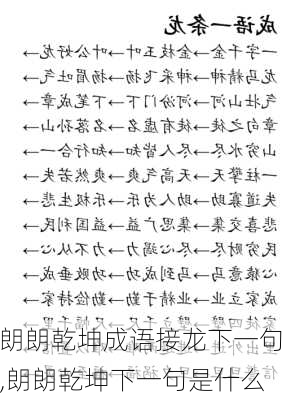 成语一条龙
一字千金→金枝玉叶→叶公好龙→
龙马精神→神采飞扬→扬眉吐气→
气壮山河→河汾门下→下笔成章→
章句之徒→徒有虚名→名落孙山→
山穷水尽→尽人皆知→知行合一→
一柱擎天→天高气爽→爽然若失→
失道寡助→助人为乐→乐极生悲→
悲喜交集→集思广益→益国利民→
民穷财尽→尽心竭力→力不从心→
心猿意马→马到成功→功败垂成→
成家立业→业精于勤→勤俭持家→
家徒四壁→
朗朗乾坤成语接龙下一句
,朗朗乾坤下一句是什么